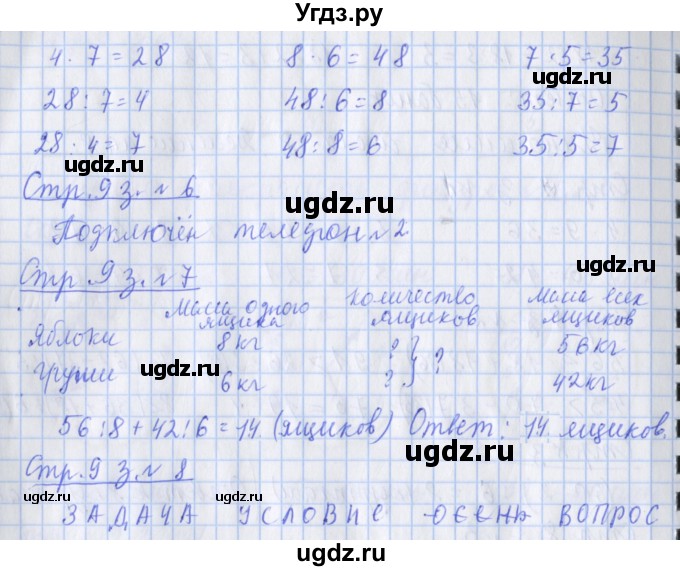 Угдз.ру
4 · 7 = 28 8 · 6 = 48 7 · 5 = 35
28 : 7 = 4 48 : 6 = 8 35 : 7 = 5
28 · 4 = 7 48 : 8 = 6 35 : 5 = 7
ugdz.ru ugdz.ru ugdz.ru
Стр. 9 з. № 6
ugdz.ru ugdz.ru
Подключён телефон № 2
Стр. 9 з. № 7
Масса одного ящика Количество ящиков Масса всех ящиков
Яблоки 8 кг ? } ? 56 кг
Груши 6 кг ? 42 кг
ugdz.ru ugdz.ru
56 : 8 + 42 : 6 = 14 (ящиков) Ответ: 14 ящиков.
ugdz.ru
Стр. 9 з. № 8
ugdz.ru ugdz.ru ugdz.ru
ЗАДАЧА УСЛОВИЕ ВОПРОС
ugdz.ru